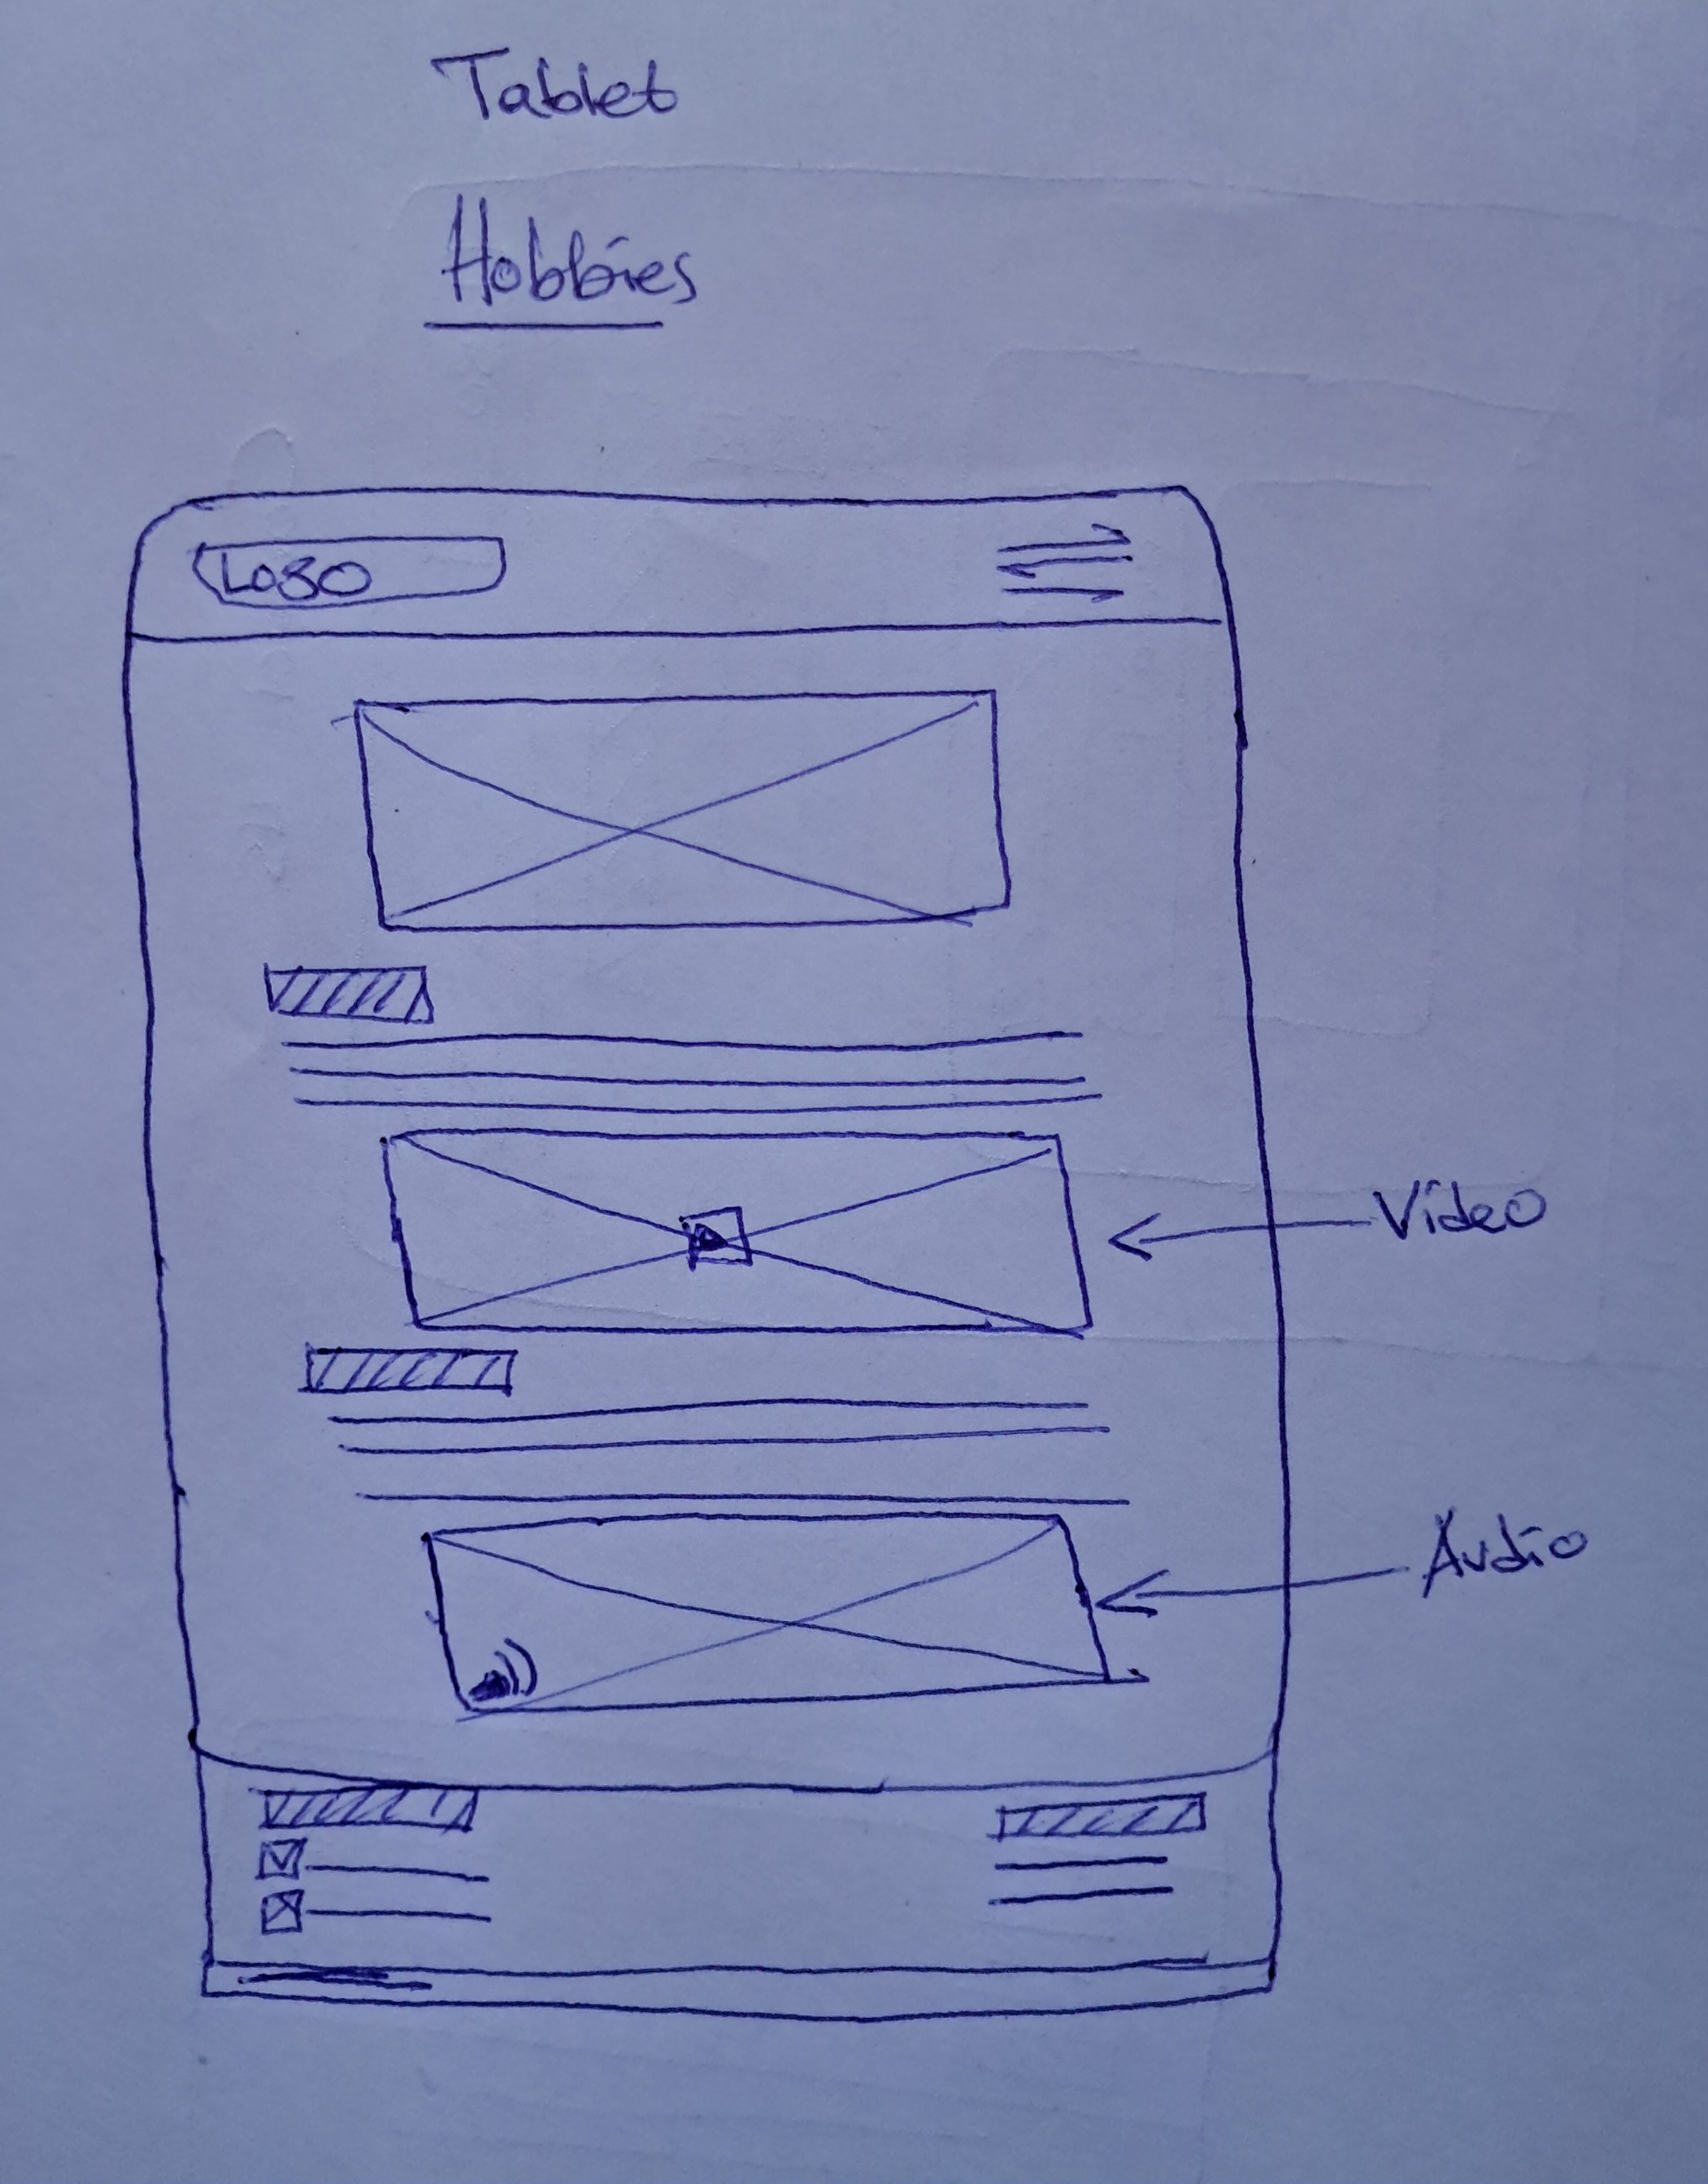 Tablet
Hobbies
LOGO
Vídeo
Áudio